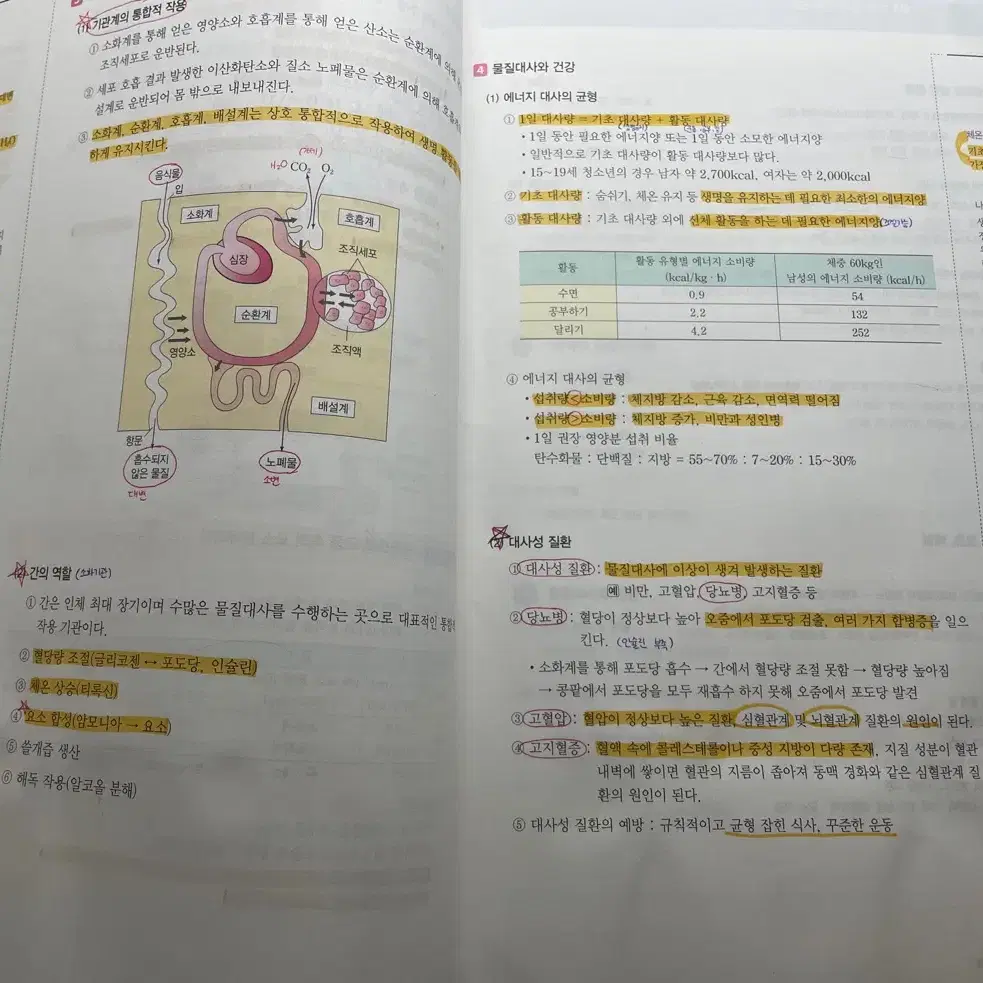 (1) 기관계의 통합적 작용
① 소화계를 통해 얻은 영양소와 호흡계를 통해 얻은 산소는 순환계에 의해
조직세포로 운반된다.
② 세포 호흡 결과 발생한 이산화탄소와 질소 노폐물은 순환계에 의해 호흡계
설계로 운반되어 몸 밖으로 내보내진다.
③ 소화계, 순환계, 호흡계, 배설계는 상호 통합적으로 작용하여 생명
하게 유지시킨다.
음식물
입
H₂O CO₂ O₂
소화계
호흡계
조직세포
심장
순환계
영양소
조직액
배설계
항문
흡수되지
않은 물질
대변
노폐물
소변
(2) 간의 역할 (소화기관)
① 간은 인체 최대 장기이며 수많은 물질대사를 수행하는 곳으로 대표적인 통합
작용 기관이다.
② 혈당량 조절(글리코젠 ↔ 포도당, 인슐린)
③ 체온 상승(티록신)
④ 요소 합성(암모니아 → 요소)
⑤ 쓸개즙 생산
⑥ 해독 작용(알코올 분해)
4 물질대사와 건강
(1) 에너지 대사의 균형
① 1일 대사량 = 기초 대사량 + 활동 대사량
• 1일 동안 필요한 에너지양 또는 1일 동안 소모한 에너지양
• 일반적으로 기초 대사량이 활동 대사량보다 많다.
• 15~19세 청소년의 경우 남자 약 2,700kcal, 여자는 약 2,000kcal
② 기초 대사량 : 숨쉬기, 체온 유지 등 생명을 유지하는 데 필요한 최소한의 에너지양
③ 활동 대사량 : 기초 대사량 외에 신체 활동을 하는 데 필요한 에너지양
활동 활동 유형별 에너지 소비량 (kcal/kg · h) 체중 60kg인 남성의 에너지 소비량 (kcal/h)
수면 0.9 54
공부하기 2.2 132
달리기 4.2 252
④ 에너지 대사의 균형
• 섭취량<소비량 : 체지방 감소, 근육 감소, 면역력 떨어짐
• 섭취량>소비량 : 체지방 증가, 비만과 성인병
• 1일 권장 영양분 섭취 비율
탄수화물 : 단백질 : 지방 = 55~70% : 7~20% : 15~30%
(2) 대사성 질환
① 대사성 질환 : 물질대사에 이상이 생겨 발생하는 질환
예 비만, 고혈압, 당뇨병, 고지혈증 등
② 당뇨병 : 혈당이 정상보다 높아 오줌에서 포도당 검출, 여러 가지 합병증을 일으
킨다. (인슐린 부족)
• 소화계를 통해 포도당 흡수 → 간에서 혈당량 조절 못함 → 혈당량 높아짐
→ 콩팥에서 포도당을 모두 재흡수 하지 못해 오줌에서 포도당 발견
③ 고혈압 : 혈압이 정상보다 높은 질환, 심혈관계 및 뇌혈관계 질환의 원인이 된다.
④ 고지혈증 : 혈액 속에 콜레스테롤이나 중성 지방이 다량 존재, 지질 성분이 혈관
내벽에 쌓이면 혈관의 지름이 좁아져 동맥 경화와 같은 심혈관계 질
환의 원인이 된다.
⑤ 대사성 질환의 예방 : 규칙적이고 균형 잡힌 식사, 꾸준한 운동